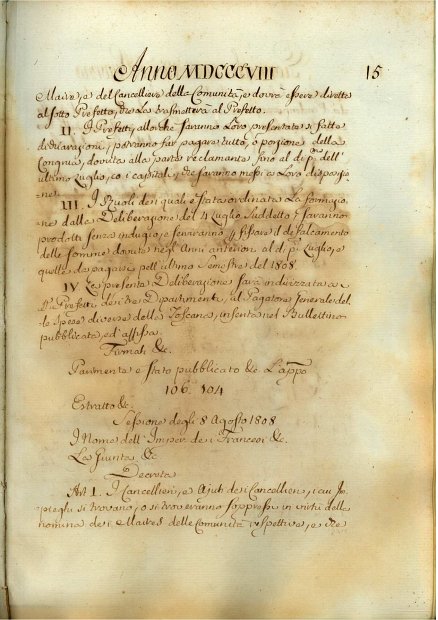 Anno MDCCCVIII 15
Maire, e del Cancelliere della Comunità, e dovrà essere diretta
al sotto Prefetto, che la trasmetterà al Prefetto.
II. I Prefetti, allorchè saranno loro presentate sì fatte
dichiarazioni, potranno far pagare tutto, o porzione della
Congrua, dovuta alla parte reclamante fino al dì pmo dell'
ultimo Luglio, co i capitali, che saranno messi a loro disposizio-
ne.
III. I Ruoli dei quali è stata ordinata la formazio-
ne dalla Deliberazione del 4 Luglio Suddetto saranno
prodotti senza indugio, e serviranno p fissare il defalcamento
delle somme dovute negl'Anni anteriori al dì pmo Luglio, e
quelle da pagarsi pell'ultimo Semestre del 1808.
IV. La presente Deliberazione sarà indirizzata a
Prefetti dei tre Dipartimenti, il Pagatore Generale del
le Spese diverse della Toscana, inserita nel Bullettino
pubblicata, ed affissa.
Firmati &c.
Parimente è stato pubblicato &c. L'appo
106. 104
Estratto &c.
Sessione degli 8 Agosto 1808
I Nome dell'Imper. dei Francesi &c.
La Giunta &c
Decreta
Art. I. I Cancellieri, e Ajuti dei Cancellieri, i cui Im-
pieghi si trovano, o si troveranno soppressi in virtù della
nomina dei Maires delle Comunità respettive, e che